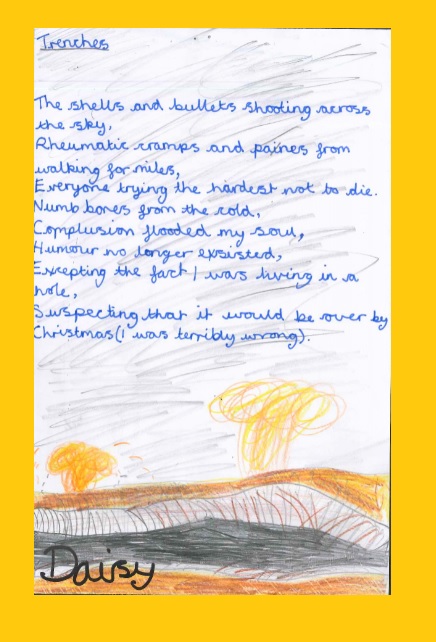 Trenches
The shells and bullets shooting across
the sky,
Rheumatic cramps and paines from
walking for miles,
Everyone trying the hardest not to die.
Numb bones from the cold,
Complusion flooded my soul,
Humour no longer exsisted,
Excepting the fact I was living in a
hole,
Suspecting that it would be over by
Christmas (I was terribly wrong).
Daisy